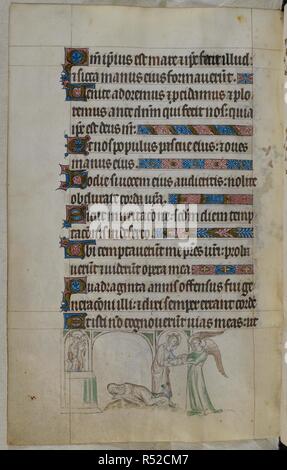 m ipsius est mare et ipse fecit illud:
et sicca manus eius formaverunt.
Venite adoremus et procidamus et plo
remus ante dnm qui fecit nos: quia
ipse est deus nr.
Et nos populus pascue eius: et oves
manus eius.
Hodie si vocem eius audieritis: nolite
obdurare corda vra.
Sicut in irritacione: scdm diem temp
tacionis in deserto.
Ubi temptaverunt me patres vri: proba
verunt et viderunt opera mea
Quadraginta annis offensus fui ge
neracioni illi: et dixi semper errant corde
Et isti no cognoverunt vias meas: ut
alamy
R52CM7
www.alamy.com